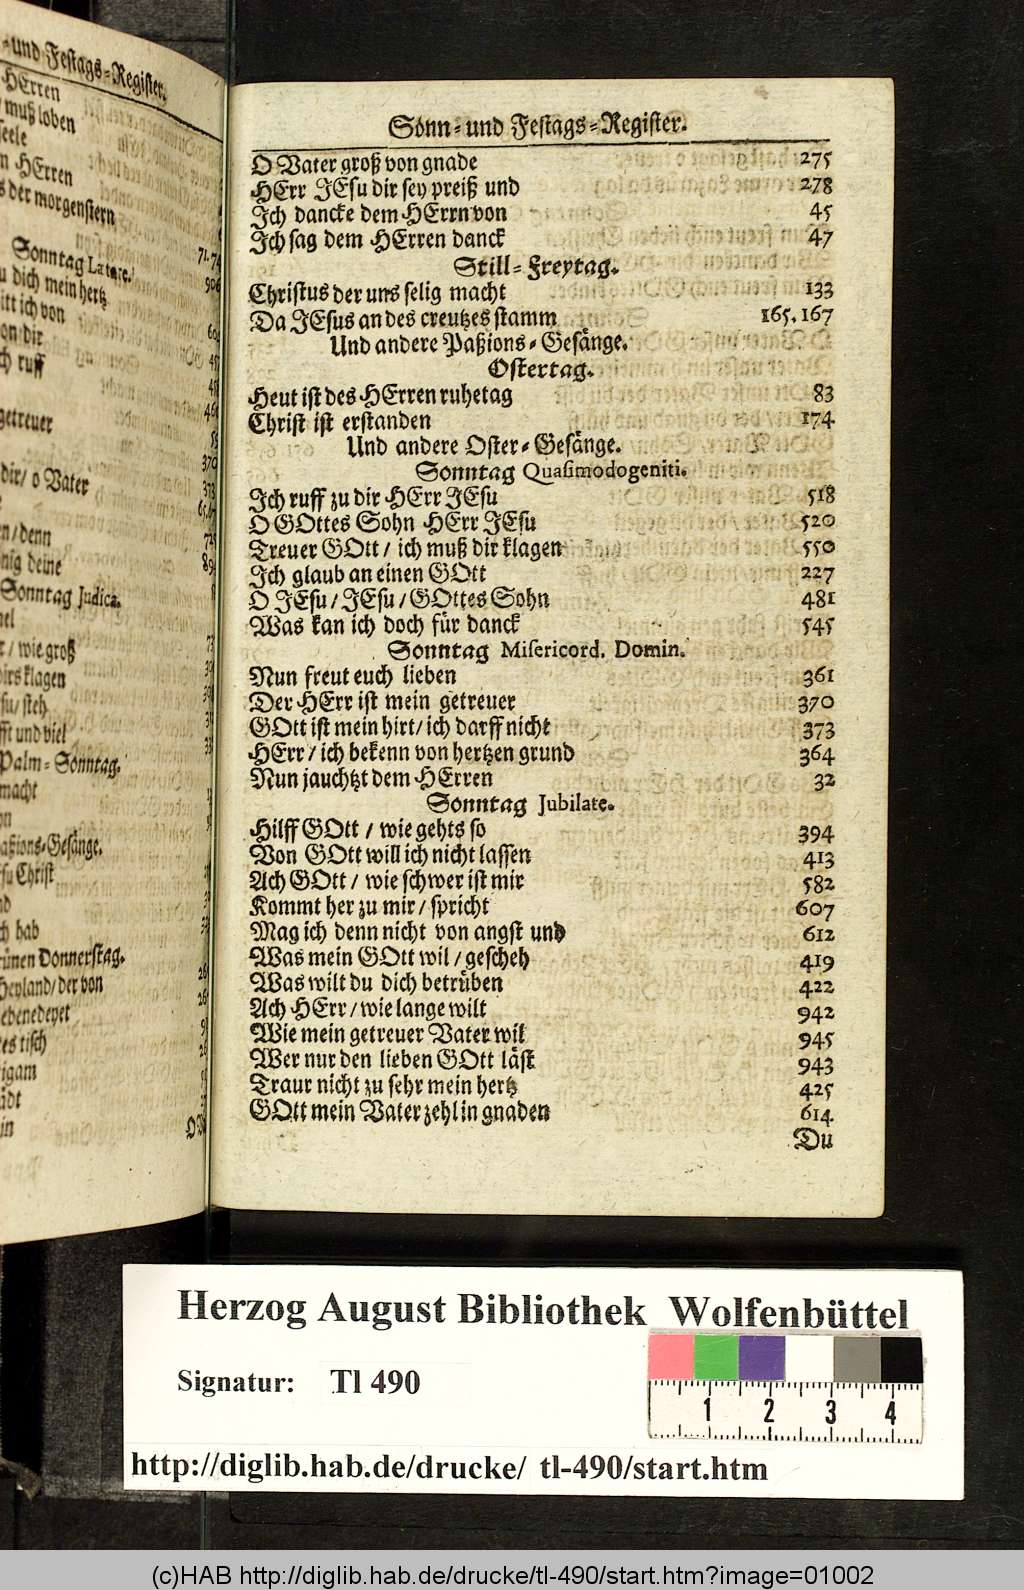 - und Festags-Register.
HErren
muß loben
seele
HErren
der morgenstern
71. 74
Sonntag Lætare.
906
dich mein hertz
itt ich von
on dir
ch ruff
getreuer
370
dir/ o Vater
373
denn
nig deine
Sonntag Judica.
wie groß
klagen
steh
und viel
Palm-Sonntag.
macht
Paßions-Gesänge.
Christ
hab
Grünen Donnerstag.
Heyland/ der von
gebenedeyet
tisch
Sonn- und Festags-Register.
O Vater groß von gnade 275
HErr JEsu dir sey preiß und 278
Ich dancke dem HErrn von 45
Ich sag dem HErren danck 47
Still-Freytag.
Christus der uns selig macht 133
Da JEsus an des creutzes stamm 165. 167
Und andere Paßions-Gesänge.
Ostertag.
Heut ist des HErren ruhetag 83
Christ ist erstanden 174
Und andere Oster-Gesänge.
Sonntag Quasimodogeniti.
Ich ruff zu dir HErr JEsu 518
O GOttes Sohn HErr JEsu 520
Treuer GOtt/ ich muß dir klagen 550
Ich glaub an einen GOtt 227
O JEsu/ JEsu/ GOttes Sohn 481
Was kan ich doch für danck 545
Sonntag Misericord. Domin.
Nun freut euch lieben 361
Der HErr ist mein getreuer 370
GOtt ist mein hirt/ ich darff nicht 373
HErr/ ich bekenn von hertzen grund 364
Nun jauchtzt dem HErren 32
Sonntag Jubilate.
Hilff GOtt/ wie gehts so 394
Von GOtt will ich nicht lassen 413
Ach GOtt/ wie schwer ist mir 582
Kommt her zu mir/ spricht 607
Mag ich denn nicht von angst und 612
Was mein GOtt wil/ gescheh 419
Was wilt du dich betrüben 422
Ach HErr/ wie lange wilt 942
Wie mein getreuer Vater wil 945
Wer nur den lieben GOtt läst 943
Traur nicht zu sehr mein hertz 425
GOtt mein Vater zehl in gnaden 614
Du
Herzog August Bibliothek Wolfenbüttel
Signatur: Tl 490
1 2 3 4
http://diglib.hab.de/drucke/ tl-490/start.htm
(c)HAB http://diglib.hab.de/drucke/tl-490/start.htm?image=01002